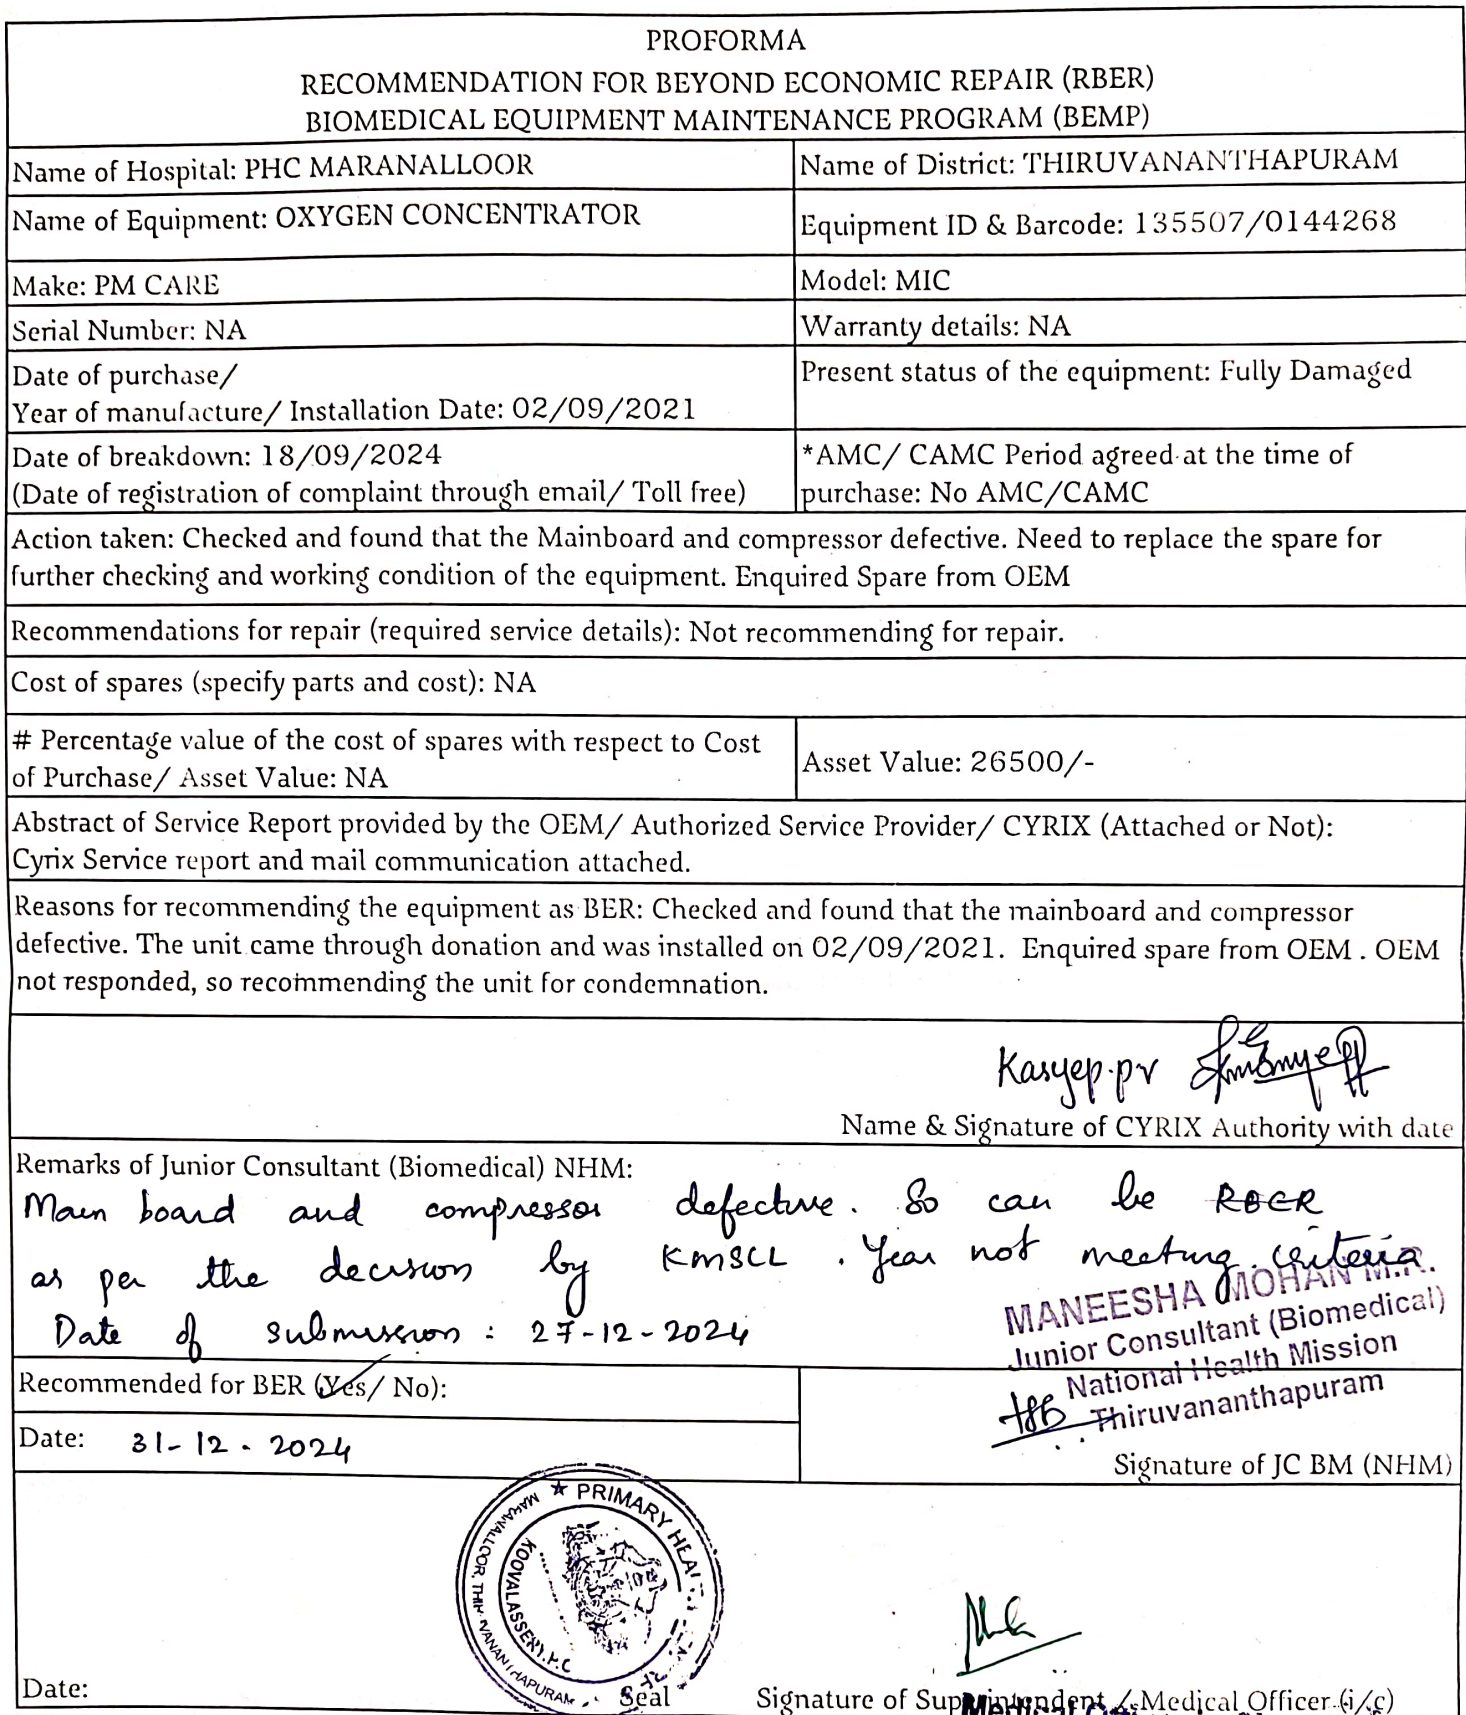 PROFORMA
RECOMMENDATION FOR BEYOND ECONOMIC REPAIR (RBER)
BIOMEDICAL EQUIPMENT MAINTENANCE PROGRAM (BEMP)
Name of Hospital: PHC MARANALLOOR
Name of District: THIRUVANANTHAPURAM
Name of Equipment: OXYGEN CONCENTRATOR
Equipment ID & Barcode: 135507/0144268
Make: PM CARE
Model: MIC
Serial Number: NA
Warranty details: NA
Date of purchase/
Year of manufacture/ Installation Date: 02/09/2021
Present status of the equipment: Fully Damaged
Date of breakdown: 18/09/2024
(Date of registration of complaint through email/ Toll free)
*AMC/ CAMC Period agreed at the time of
purchase: No AMC/CAMC
Action taken: Checked and found that the Mainboard and compressor defective. Need to replace the spare for
further checking and working condition of the equipment. Enquired Spare from OEM
Recommendations for repair (required service details): Not recommending for repair.
Cost of spares (specify parts and cost): NA
# Percentage value of the cost of spares with respect to Cost
of Purchase/ Asset Value: NA
Asset Value: 26500/-
Abstract of Service Report provided by the OEM/ Authorized Service Provider/ CYRIX (Attached or Not):
Cyrix Service report and mail communication attached.
Reasons for recommending the equipment as BER: Checked and found that the mainboard and compressor
defective. The unit came through donation and was installed on 02/09/2021. Enquired spare from OEM . OEM
not responded, so recommending the unit for condemnation.
Kasyep.pv
Name & Signature of CYRIX Authority with date
Remarks of Junior Consultant (Biomedical) NHM:
Main board and compressor defective. So can be RBER
as per the decision by KMSCL . Year not meeting criteria
Date of submission : 27-12-2024
MANEESHA MOHAN M.R.
Junior Consultant (Biomedical)
National Health Mission
Thiruvananthapuram
Recommended for BER (Yes/ No):
Date: 31-12-2024
Signature of JC BM (NHM)
PRIMARY HEALTH
MARANALLOOR, THIRUVANANTHAPURAM
KOOVALASSERY.P.O
Date:
Seal
Signature of Superintendent / Medical Officer (i/c)